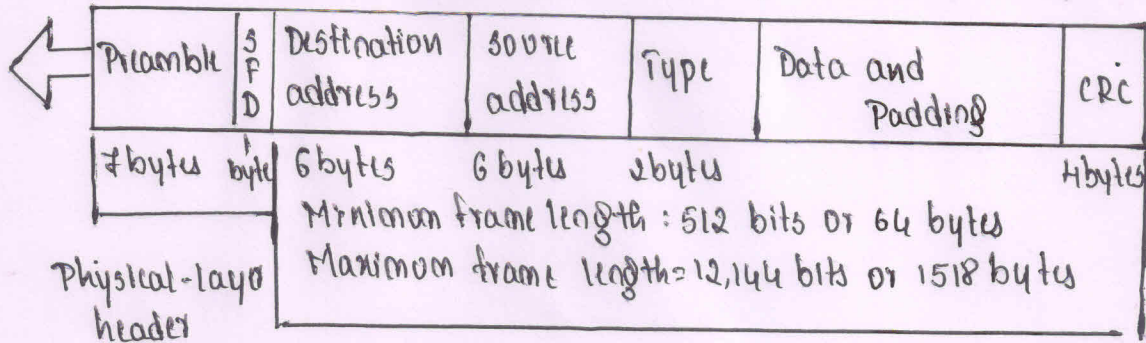 Preamble SFD Destination address Source address Type Data and Padding CRC
7 bytes 1 byte 6 bytes 6 bytes 2 bytes 4 bytes
Minimon frame length : 512 bits or 64 bytes
Maximom frame length = 12,144 bits or 1518 bytes
Physical-laye
header